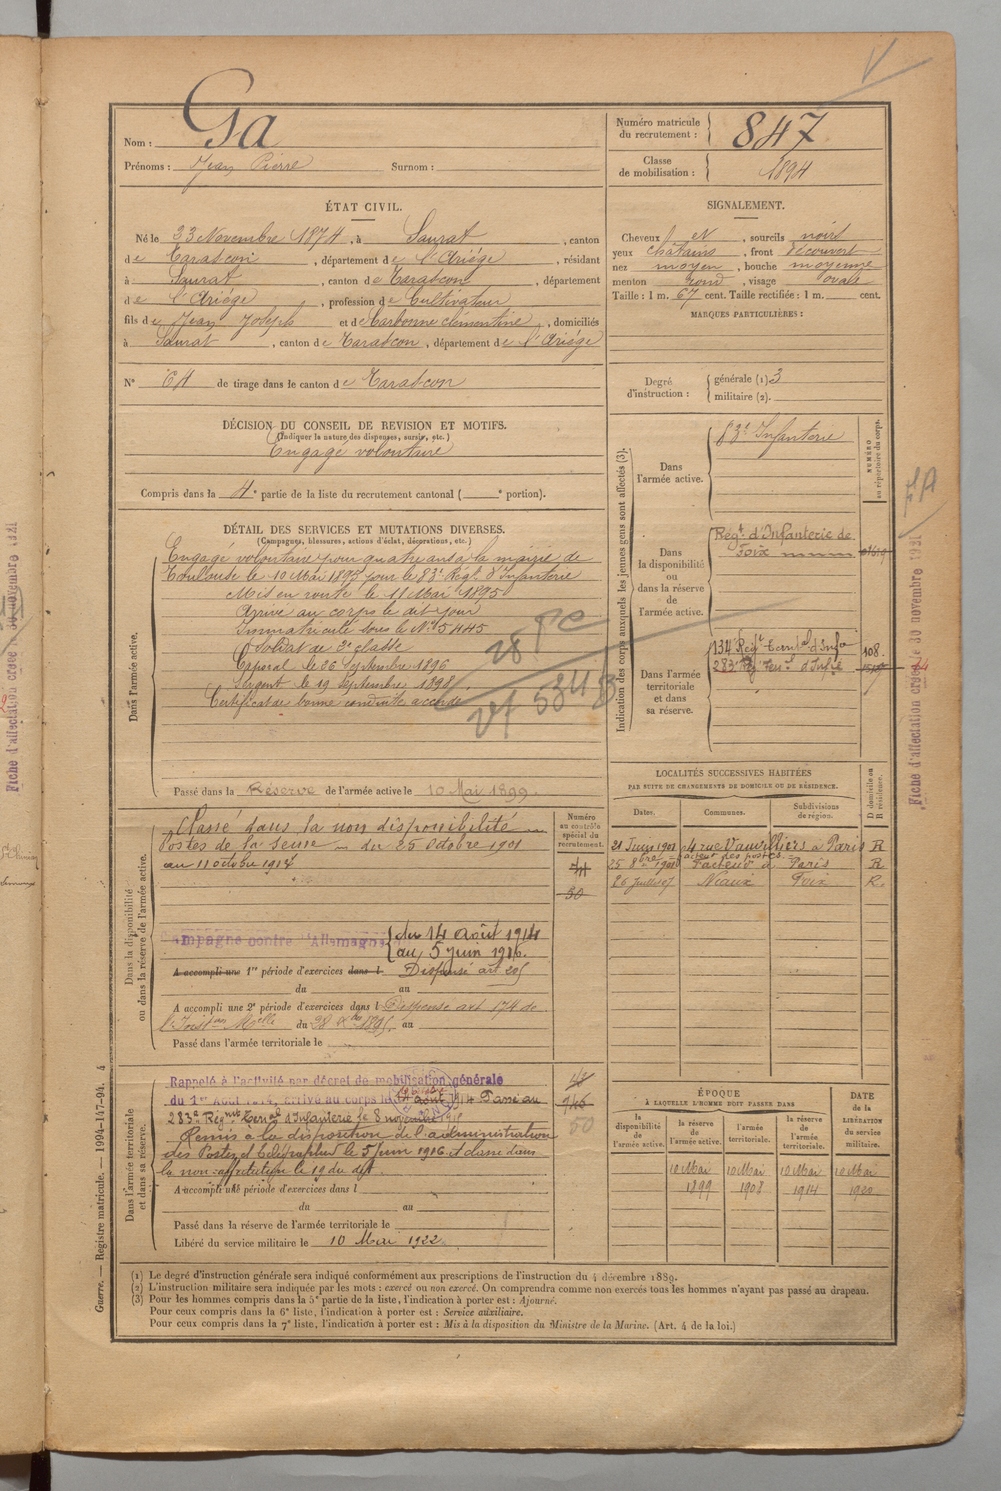 Nom : Ga
Prénoms : Jean Pierre Surnom :
Numéro matricule du recrutement : 847
Classe de mobilisation : 1894
ÉTAT CIVIL.
Né le 23 Novembre 1874, à Saurat, canton
de Tarascon, département de l'Ariège, résidant
à Saurat, canton de Tarascon, département
de l'Ariège, profession de Cultivateur
fils de Jean Joseph et de Carbonne Clémentine, domiciliés
à Saurat, canton de Tarascon, département de l'Ariège
N° 64 de tirage dans le canton de Tarascon
SIGNALEMENT.
Cheveux et, sourcils noirs
yeux chatains, front découvert
nez moyen, bouche moyenne
menton rond, visage ovale
Taille : 1 m. 67 cent. Taille rectifiée : 1 m. cent.
MARQUES PARTICULIÈRES :
Degré d'instruction : générale (1) 3
militaire (2).
DÉCISION DU CONSEIL DE REVISION ET MOTIFS.
(Indiquer la nature des dispenses, sursis, etc.)
Engagé volontaire
Compris dans la 4e partie de la liste du recrutement cantonal ( e portion).
DÉTAIL DES SERVICES ET MUTATIONS DIVERSES.
(Campagnes, blessures, actions d'éclat, décorations, etc.)
Dans l'armée active.
Engagé volontaire pour quatre ans à la mairie de
Toulouse le 10 Mai 1895 pour le 83e Régt d'Infanterie
Mis en route le 11 Mai 1895
Arrivé au corps le dit jour
Immatriculé sous le No 5445
Soldat de 2e classe
Caporal le 26 Septembre 1896
Sergent le 19 Septembre 1898.
Certificat de bonne conduite accordé
Passé dans la Réserve de l'armée active le 10 Mai 1899.
Indication des corps auxquels les jeunes gens sont affectés (3).
NUMÉRO au répertoire du corps.
Dans l'armée active.
83e Infanterie
Dans la disponibilité ou dans la réserve de l'armée active.
Régt d'Infanterie de
Foix
Dans l'armée territoriale et dans sa réserve.
134 Regt Territal d'Infie 108.
283e Rg Teral d'Infie
Fiche d'affectation créée le 30 novembre 1921
Fiche d'affectation créée le 30 novembre 1921
LOCALITÉS SUCCESSIVES HABITÉES
PAR SUITE DE CHANGEMENTS DE DOMICILE OU DE RÉSIDENCE.
Dates. Communes. Subdivisions de région. D domicile ou R résidence.
21 Juin 1901 4 rue Vauvilliers à Paris R
facteur des postes
25 8bre 1901 Facteur à Paris R
26 Juillet 07 Niaux Foix R.
Dans la disponibilité ou dans la réserve de l'armée active.
Numéro au contrôle spécial du recrutement.
Classé dans la non disponibilité
Postes de la Seine du 25 Octobre 1901
au 11 octobre 1914
Campagne contre l'Allemagne du 14 Août 1914
au 5 Juin 1916.
A accompli une 1re période d'exercices dans l. Dispensé art 205
du au
A accompli une 2e période d'exercices dans l Dispense art 174 de
l'Inston Melle du 28 Xbre 1895 au
Passé dans l'armée territoriale le
Dans l'armée territoriale et dans sa réserve.
Rappelé à l'activité par décret de mobilisation générale
du 1er Août 1914, arrivé au corps le 14 août 1914 Passé au
283e Régnt Teral d'Infanterie le 8 novembre 1915
Remis à la disposition de l'administration
des Postes et Télégraphes le 5 Juin 1916 et classé dans
la non-affectation le 19 du dit.
A accompli une période d'exercices dans l
du au
Passé dans la réserve de l'armée territoriale le
Libéré du service militaire le 10 Mai 1922.
50
ÉPOQUE
À LAQUELLE L'HOMME DOIT PASSER DANS
la disponibilité de l'armée active. la réserve de l'armée active. l'armée territoriale. la réserve de l'armée territoriale. DATE de la LIBÉRATION du service militaire.
10 Mai 10 Mai 10 Mai 10 Mai
1899 1908 1914 1920
(1) Le degré d'instruction générale sera indiqué conformément aux prescriptions de l'instruction du 4 décembre 1889.
(2) L'instruction militaire sera indiquée par les mots : exercé ou non exercé. On comprendra comme non exercés tous les hommes n'ayant pas passé au drapeau.
(3) Pour les hommes compris dans la 5e partie de la liste, l'indication à porter est : Ajourné.
Pour ceux compris dans la 6e liste, l'indication à porter est : Service auxiliaire.
Pour ceux compris dans la 7e liste, l'indication à porter est : Mis à la disposition du Ministre de la Marine. (Art. 4 de la loi.)
Guerre. — Registre matricule. — 1994-147-94. 4